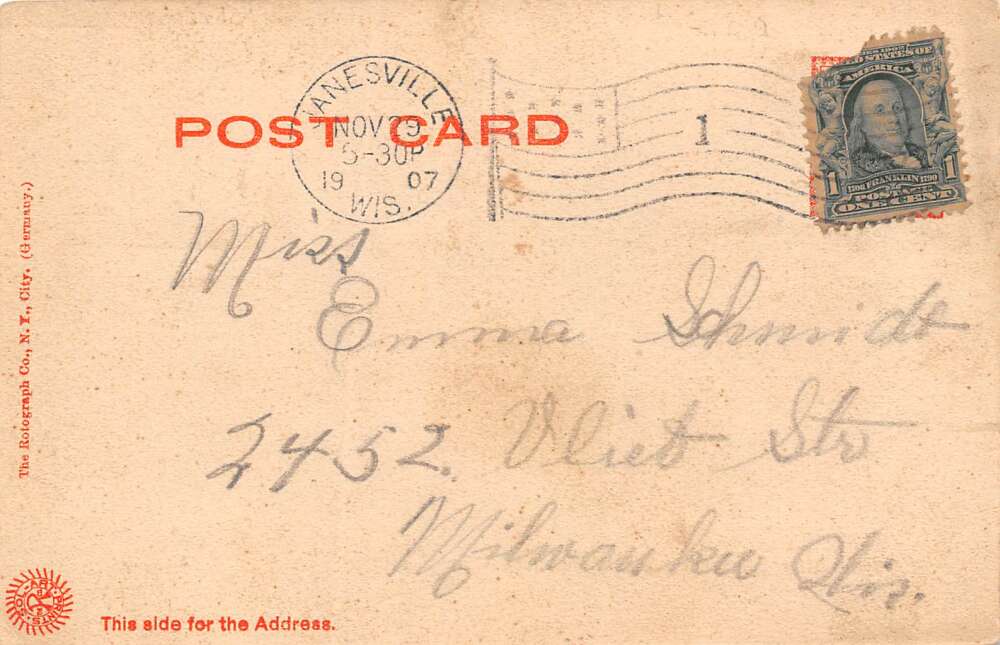 POST CARD
JANESVILLE
NOV 29
5-30P
19 07
WIS.
1
SERIES 1902
UNITED STATES OF
AMERICA
1 1
1706 FRANKLIN 1790
POSTAGE
ONE CENT
Miss
Emma Schmidt
2452. Vliet Str
Milwaukee Wis.
The Rotograph Co., N. Y., City. (Germany.)
SOL-ART PRINTS
This side for the Address.